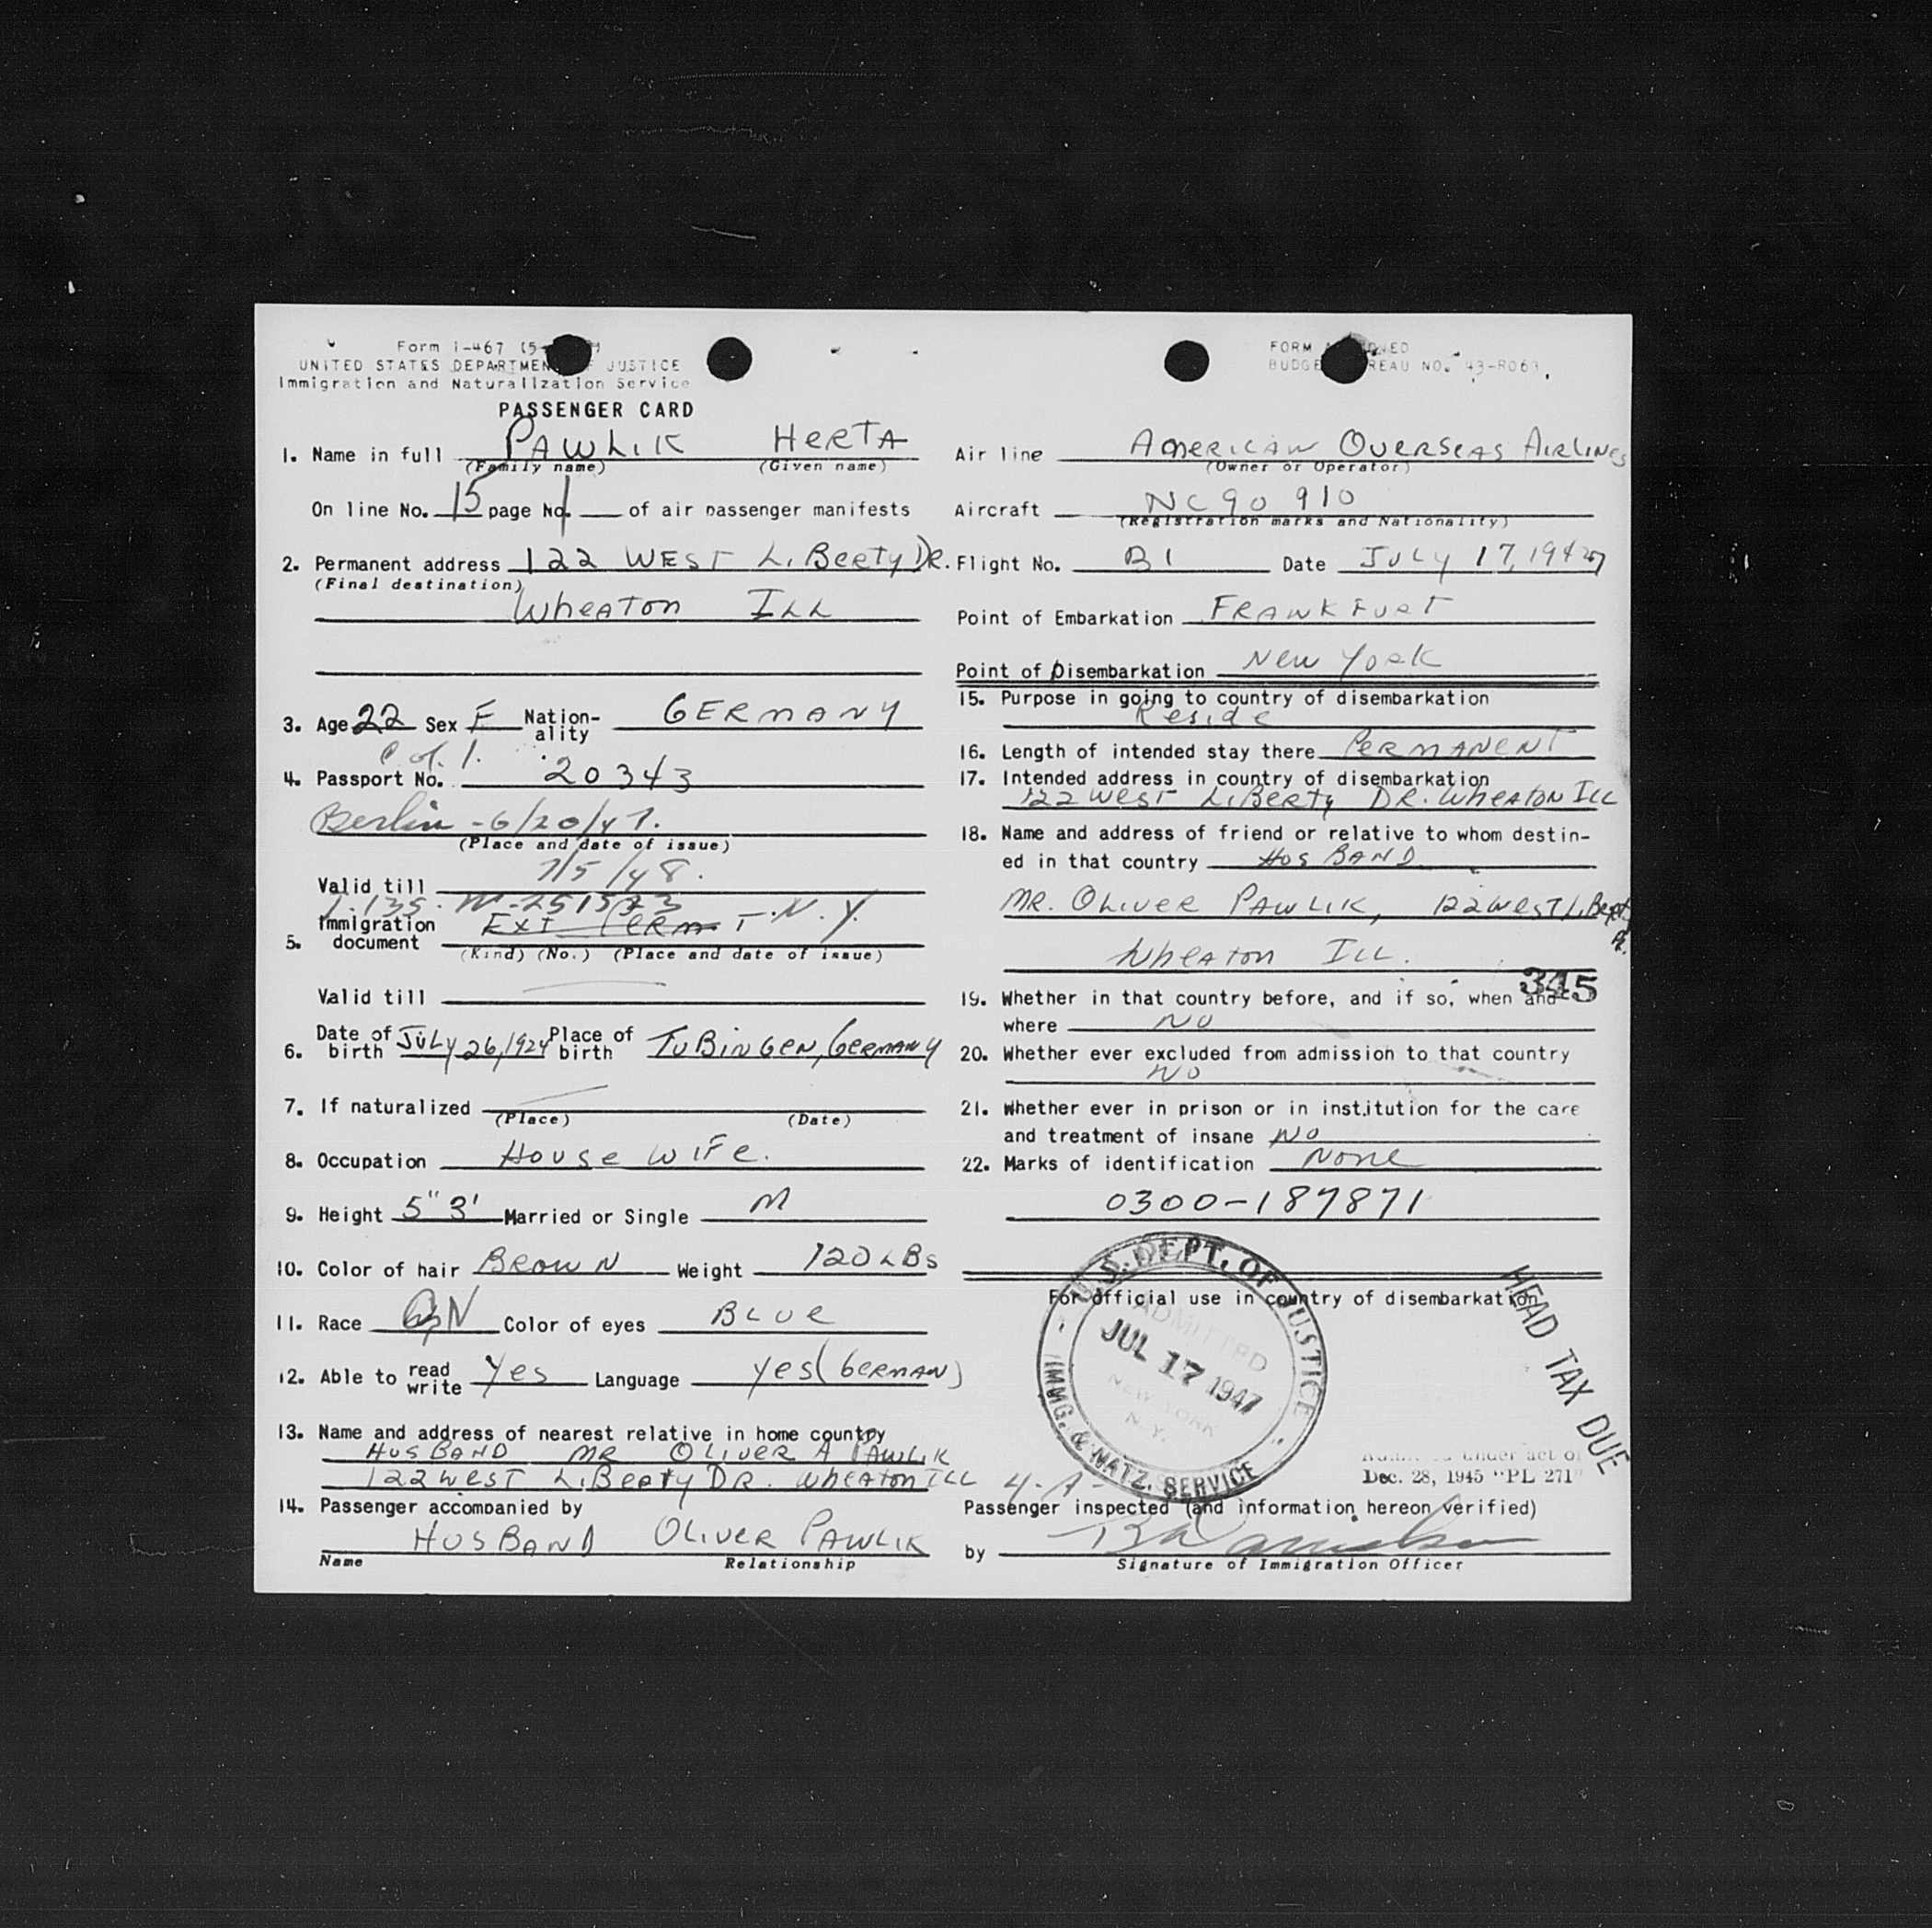 Form I-467 (5-
UNITED STATES DEPARTMENT OF JUSTICE
Immigration and Naturalization Service
PASSENGER CARD
1. Name in full PAWLIK HERTA
(Family name) (Given name)
On line No. 15 page No. 1 of air passenger manifests
2. Permanent address 122 WEST LIBERTY DR.
(Final destination)
WHEATON ILL
3. Age 22 Sex F Nation-ality GERMANY
4. Passport No. 20343
Berlin - 6/20/47.
(Place and date of issue)
Valid till 7/5/48.
5. Immigration document EXT PERMIT N.Y.
(Kind) (No.) (Place and date of issue)
Valid till
6. Date of birth JULY 26, 1924 Place of birth TUBINGEN, GERMANY
7. If naturalized
(Place) (Date)
8. Occupation HOUSE WIFE.
9. Height 5" 3' Married or Single M
10. Color of hair BROWN Weight 120 LBS
11. Race Color of eyes BLUE
12. Able to read write Yes Language yes (GERMAN)
13. Name and address of nearest relative in home country
HUSBAND MR OLIVER A PAWLIK
122 WEST LIBERTY DR. WHEATON ILL
14. Passenger accompanied by
HUSBAND OLIVER PAWLIK
Name Relationship
FORM APPROVED
BUDGET BUREAU NO. 43-R063.
Air line AMERICAN OVERSEAS AIRLINES
(Owner or Operator)
Aircraft NC90 910
(Registration marks and Nationality)
Flight No. B1 Date JULY 17, 1947
Point of Embarkation FRANKFURT
Point of Disembarkation NEW YORK
15. Purpose in going to country of disembarkation
Reside
16. Length of intended stay there PERMANENT
17. Intended address in country of disembarkation
122 WEST LIBERTY DR. WHEATON ILL
18. Name and address of friend or relative to whom destin-
ed in that country HUSBAND
MR. OLIVER PAWLIK, 122 WEST LIBERTY
DR.
WHEATON ILL.
345
19. Whether in that country before, and if so, when and
where NO
20. Whether ever excluded from admission to that country
NO
21. Whether ever in prison or in institution for the care
and treatment of insane NO
22. Marks of identification NONE
0300-187871
For official use in country of disembarkation
U.S. DEPT. OF JUSTICE
ADMITTED
JUL 17 1947
NEW YORK
N.Y.
IMMG. & NATZ. SERVICE
HEAD TAX DUE
under act of
Dec. 28, 1945 "PL 271"
4-A-
Passenger inspected (and information hereon verified)
by
Signature of Immigration Officer